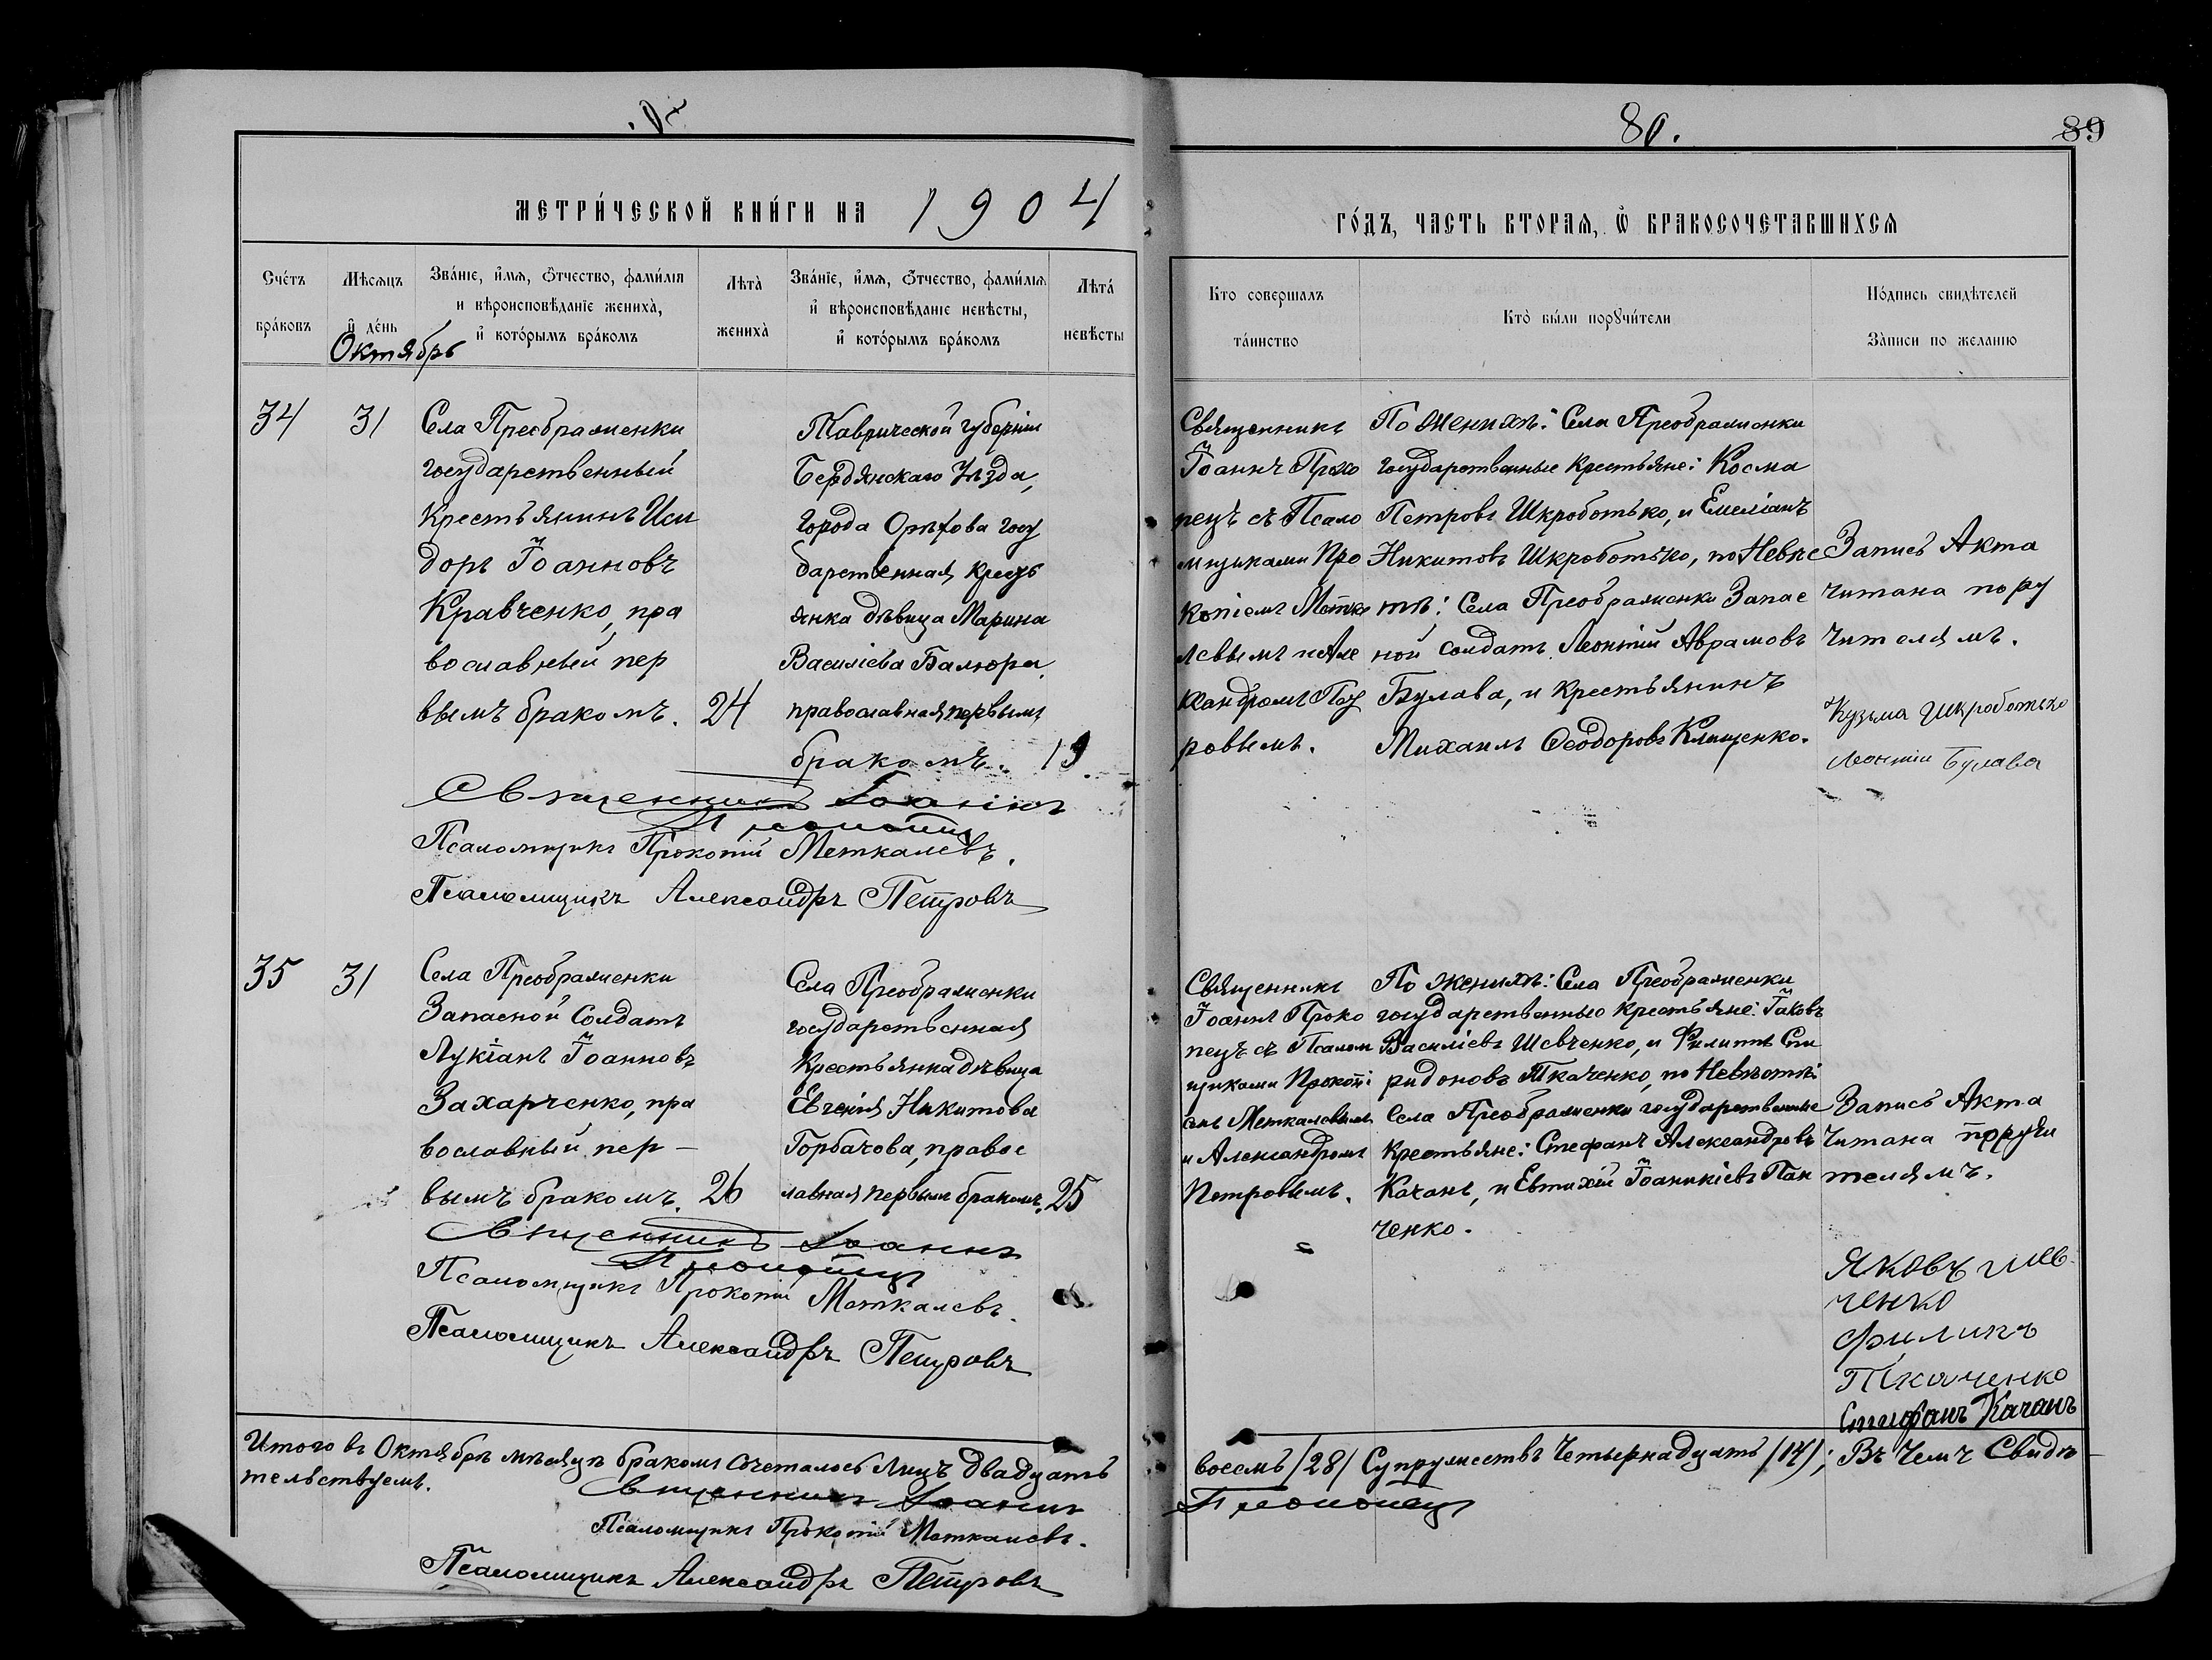 80.
89
МЕТРИ́ЧЕСКОЙ КНИ́ГИ НА 1904
ГО́ДЪ, ЧАСТЬ ВТОРАЯ, Ѡ БРАКОСОЧЕТАВШИХСЯ
Счéтъ
брáковъ
Мѣсяцъ
и́ де́нь
Октябрь
Звáнїе, и́мя, ѻ́тчество, фами́лїя
и вѣроисповѣ́данїе женихà,
и҆ кото́рымъ брáкомъ
Лѣтà
женихà
Звáнїе, и́мя, ѻ́тчество, фами́лїя
и҆ вѣроисповѣ́данїе невѣ́сты,
и҆ кото́рымъ брáкомъ
Лѣтá
невѣ́сты
Кто совершалъ
тáинство
Ктò бы́ли порꙋчи́тели
По́дпись свидѣ́телей
Зàписи по желанїю
34
31
Села Преображенки
государственный
крестьянинъ Иси
доръ Іоанновъ
Кравченко, пра
вославный пер
вымъ бракомъ.
24
Таврической губерніи
Бердянскаго Уѣзда,
города Орѣхова госу
дарственная кресть
янка дѣвица Марина
Василіева Балюра,
православная первымъ
бракомъ.
19
Священникъ
Іоаннъ Проко
пецъ съ Псало
мщиками Про
копіемъ Метка
левымъ и Але
ксандромъ Пет
ровымъ.
По женихѣ: Села Преображенки
государственные крестьяне: Косма
Петровъ Шкроботько, и Емеліанъ
Никитовъ Шкроботько, по Невѣс
тѣ: Села Преображенки Запас
ной солдатъ Леонтій Аврамовъ
Булава, и крестьянинъ
Михаилъ Ѳеодоровъ Клищенко.
Запись Акта
читана пору
чителямъ.
Кузьма Шкроботько
Леонтій Булава
Священникъ Іоаннъ
Прокопецъ
Псаломщикъ Прокопій Меткалевъ.
Псаломщикъ Александръ Петровъ
35
31
Села Преображенки
Запасной Солдатъ
Лукіанъ Іоанновъ
Захарченко, пра
вославный пер –
вымъ бракомъ.
26
Села Преображенки
государственная
Крестьянка дѣвица
Евгенія Никитова
Горбачова, правос
лавная первымъ бракомъ.
25
Священникъ
Іоаннъ Проко
пецъ съ Псалом
щиками Прокопі
емъ Меткалевымъ
и Александромъ
Петровымъ.
По женихѣ: Села Преображенки
государственные крестьяне: Іаковъ
Василіевъ Шевченко, и Филиппъ Спи
ридоновъ Ткаченко, по Невѣстѣ:
Села Преображенки государственные
Крестьяне: Стефанъ Александровъ
Качанъ, и Евтихій Іоаникіевъ Пан
ченко.
Запись Акта
читана поручи
телямъ.
Яковъ Шев
ченко
Филипъ
Ткаченко
Стефанъ Качанъ
Священникъ Іоаннъ
Прокопецъ
Псаломщикъ Прокопій Меткалевъ.
Псаломщикъ Александръ Петровъ
Итого въ Октябрѣ мѣсяцѣ бракомъ сочеталось Лицъ двадцать
восемь /28/ Супружествъ Четырнадцать /14/; Въ Чемъ Свидѣ
тельствуемъ.
Священникъ Іоаннъ
Прокопецъ
Псаломщикъ Прокопій Меткалевъ.
Псаломщикъ Александръ Петровъ